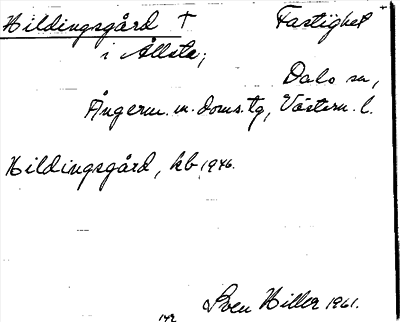 Hildingsgård † Fastighet
i Ållsta;
Dals sn,
Ångerm. m. doms. tg, Västern. l.
Hildingsgård, kb 1946.
Sven Hiller 1961.
142